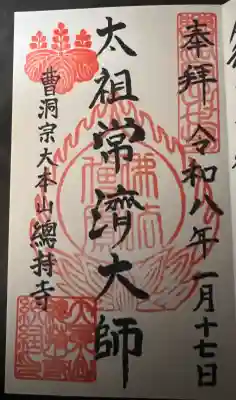 奉拜 令和八年一月十七日
太祖常濟大師
曹洞宗大本山總持寺
佛法僧寶